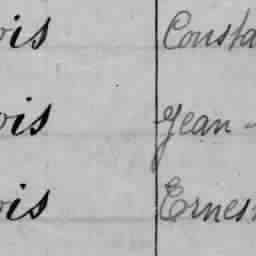 ois Consta
ois Jean -
ois Ernes